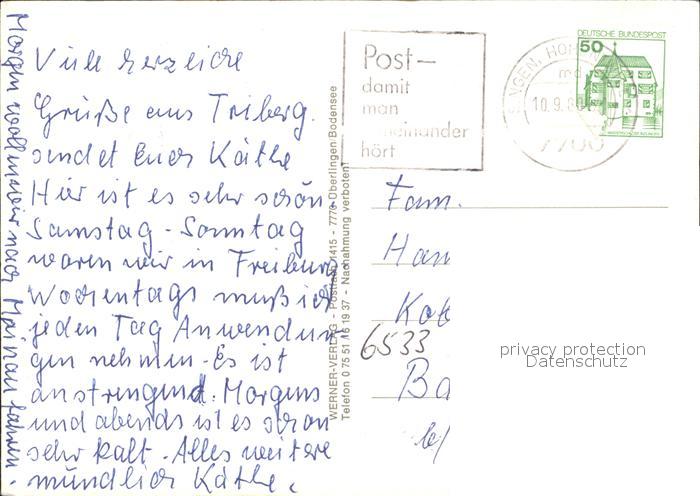 Viele herzliche
Grüße aus Triberg.
sendet Euch Käthe
Hier ist es sehr schön.
Samstag - Sonntag
waren wir in Freiburg
Wochentags muß ich
jeden Tag Anwendun-
gen nehmen. Es ist
anstrengend. Morgens
und abends ist es schon
sehr kalt. Alles weitere
mündlich Käthe.
Morgen wollen wir nach Mainau fahren.
WERNER-VERLAG - Postfach 1415 - 7770 Überlingen/Bodensee
Telefon 0 75 51 / 6 19 37 - Nachahmung verboten
Post-
damit
man
einander
hört
DEUTSCHE BUNDESPOST
50
SINGEN, HOH
md
10.9.8
7700
Fam.
Han
Kat
6533
Ba
privacy protection
Datenschutz